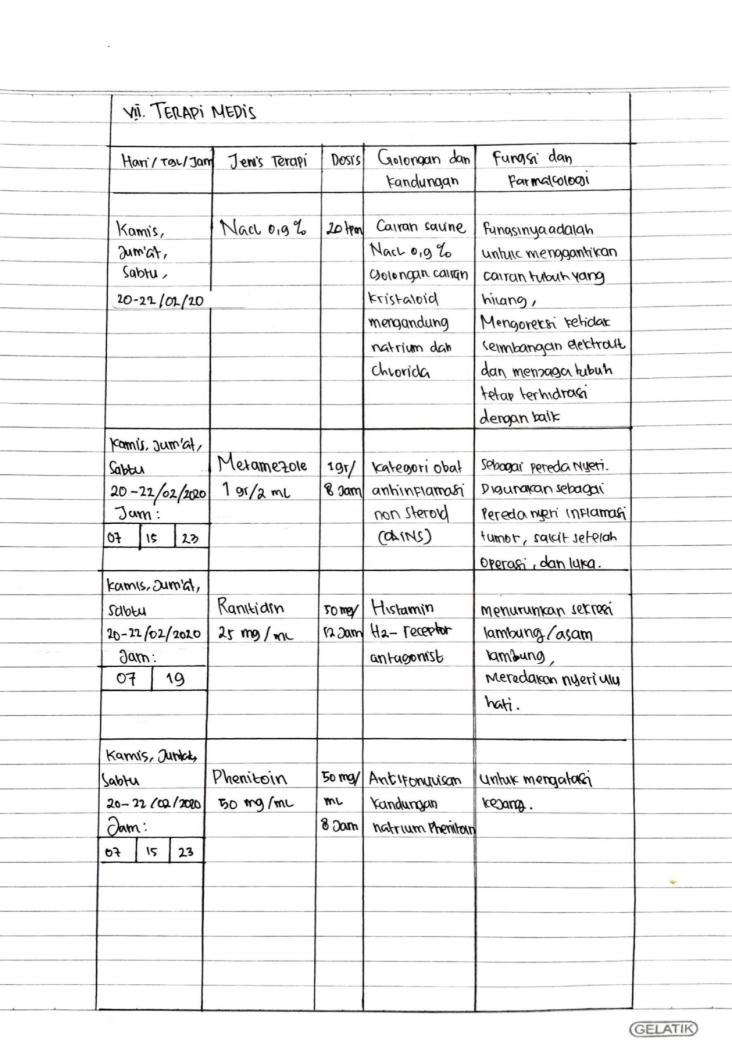 VII. TERAPI MEDIS
Hari / TGL / Jam
Jenis Terapi
Dosis
Golongan dan
Kandungan
Fungsi dan
Farmakologi
Kamis,
Jum'at,
Sabtu,
20-22/02/20
Nacl 0,9 %
20 tpm
Cairan saline
Nacl 0,9 %
Golongan cairan
kristaloid
mengandung
natrium dan
chlorida
Fungsinya adalah
untuk menggantikan
cairan tubuh yang
hilang,
Mengoreksi ketidak
seimbangan elektrolit
dan menjaga tubuh
tetap terhidrasi
dengan baik
Kamis, Jum'at,
Sabtu
20-22/02/2020
Jam:
07 15 23
Metamezole
1 gr/2 mL
1gr/
8 Jam
Kategori obat
antiinflamasi
non steroid
(OAINS)
Sebagai pereda Nyeri.
Digunakan sebagai
Pereda nyeri inflamasi
tumor, sakit setelah
Operasi, dan luka.
Kamis, Jum'at,
Sabtu
20-22/02/2020
Jam:
07 19
Ranitidin
25 mg/mL
50 mg/
12 Jam
Histamin
H2- receptor
antagonist
menurunkan sekresi
lambung/asam
lambung,
Meredakan nyeri ulu
hati.
Kamis, Jum'at,
Sabtu
20-22/02/2020
Jam:
07 15 23
Phenitoin
50 mg/mL
50 mg/
mL
8 Jam
Kandungan
natrium Phenitoin
Untuk mengatasi
kejang.
GELATIK